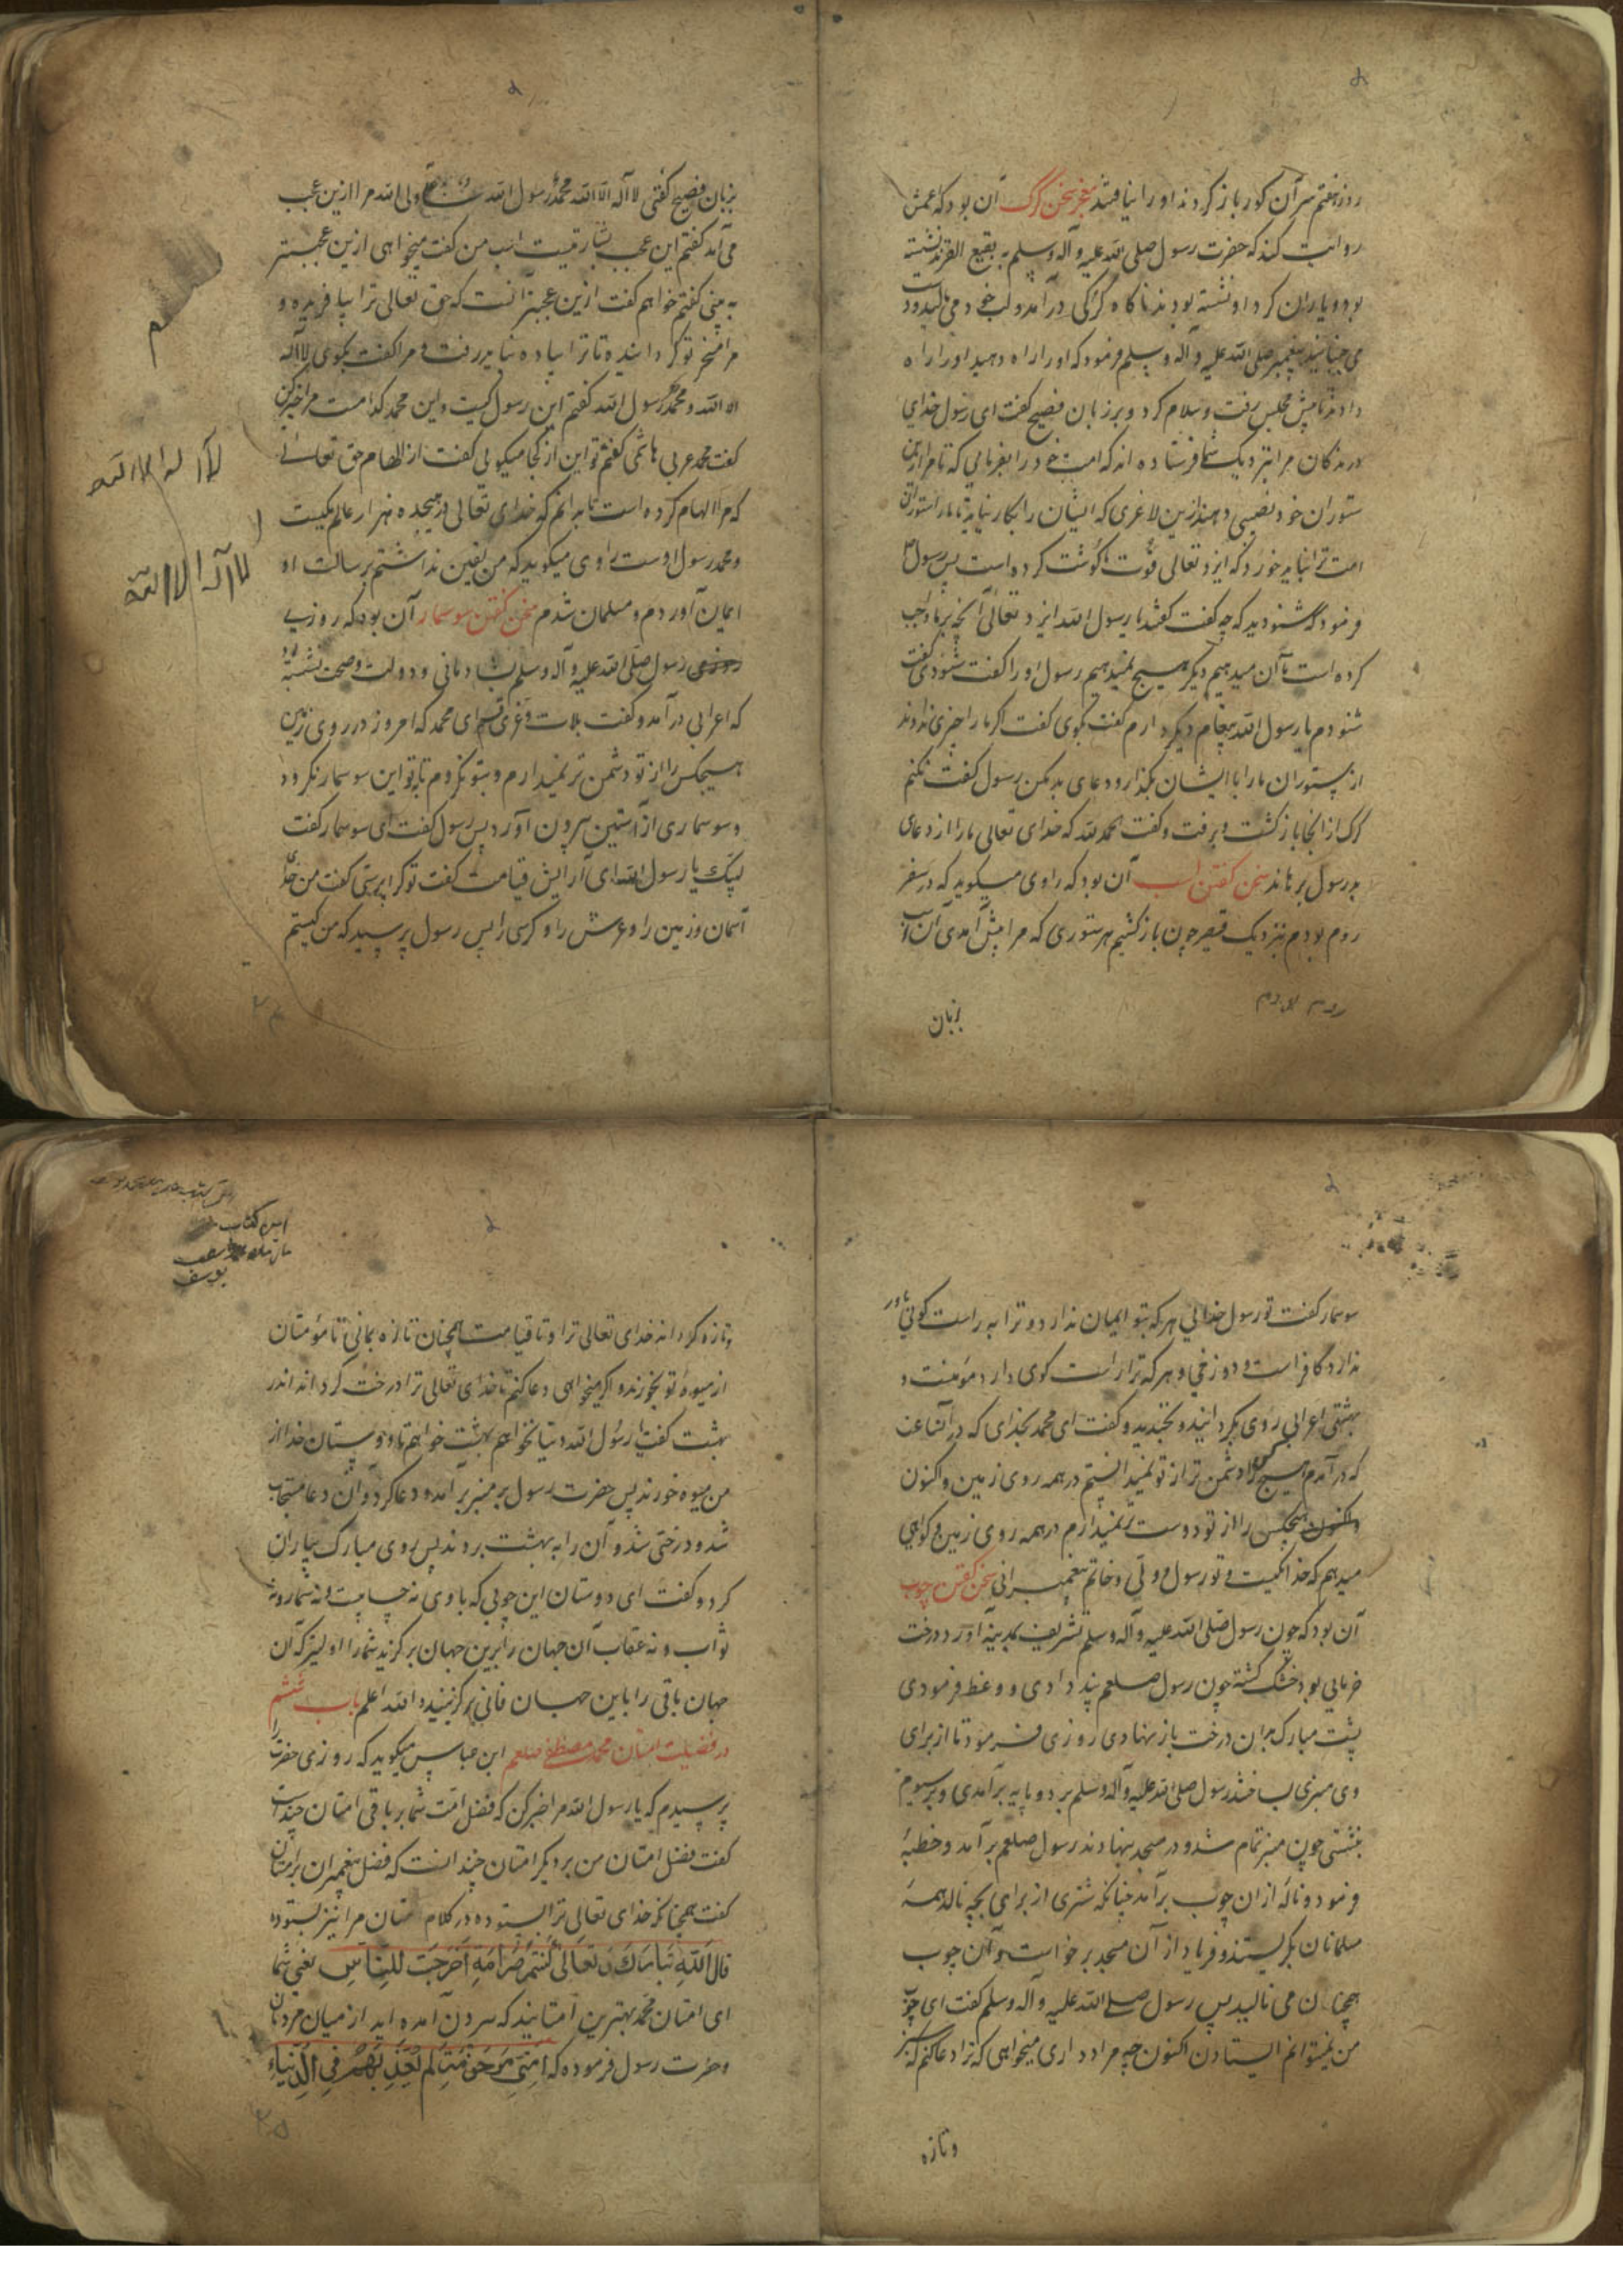 روز هفتم سر آن کور باز کردند او را نیافتند معجز سخن گرگ آن بود که اعمش
روایت کند که حضرت رسول صلی الله علیه و آله وسلم به بقیع الغرقد نشسته
بود و یاران کرد او نشسته بودند ناکاه کرکی درآمد و لب خود می‌لیسید و دست
می جنبانید پیغمبر صلی الله علیه و آله وسلم فرمود که او را راه دهید او را راه
دادند تا پیش مجلس رفت و سلام کرد و بر زبان فصیح گفت ای رسول خدای
درندکان مرا بنزدیک شما فرستاده اند که امت خود را بفرمایی که تا مرا ازین
ستوران خود نصیبی دهند ازین لاغری که ایشان را بکار نیاید تا ما را ستوران
امت ترا نباید خورد که ایزد تعالی قوت ما گوشت کرده است پس رسول
فرمود که شنودید که چه گفت گفتند یا رسول الله ایزد تعالی آنچه بر ما واجب
کرده است ما آن میدهیم دیگر هیچ نمیدهیم رسول او را گفت شنودی گفت
شنودم یا رسول الله پیغام دیگر دارم گفت بگوی گفت اگر ما را چیزی ندادند
از ستوران ما را با ایشان بگذار و دعای بد مکن رسول گفت نکنم
گرگ از آنجا بازگشت و برفت و گفت الحمد لله که خدای تعالی ما را از دعای
بد رسول برهاند سخن گفتن اسب آن بود که راوی میگوید که در سفر
روم بودم بنزدیک قیصر چون بازگشتیم هر ستوری که مرا پیش آمدی آن اسب
روم بودم
بزبان
بزبان فصیح گفتی لا اله الا الله محمد رسول الله ولی الله مرا ازین عجب
می آمد گفتم این عجب بشارتیست اسب من گفت میخواهی ازین عجبتر
به بینی گفتم خواهم گفت ازین عجبتر آنست که حق تعالی ترا بیافریده و
مرا مسخر تو گردانیده تا ترا پیاده نباید رفت و مرا گفت بگوی لا اله
الا الله و محمد رسول الله گفتم این رسول کیست و این محمد کدامست مرا خبر کن
گفت محمد عربی هاشمی گفتم تو این از کجا میگویی گفت از الهام حق تعالی
که مرا الهام کرده است تا بدانم که خدای تعالی در هیجده هزار عالم یکیست
و محمد رسول اوست راوی میگوید که من یقین نداشتم برسالت او
ایمان آوردم و مسلمان شدم سخن گفتن سوسمار آن بود که روزی
رسول صلی الله علیه و آله وسلم بشادمانی و دولت و صحت نشسته بود
که اعرابی درآمد و گفت بلات و عزی قسم ای محمد که امروز در روی زمین
هیچکس را از تو دشمن تر نمیدارم و بتو نگروم تا بتو این سوسمار نگرود
و سوسماری از آستین بیرون آورد پس رسول گفت ای سوسمار گفت
لبیک یا رسول الله ای آرایش قیامت گفت تو کرا پرستی گفت من خدای
آسمان و زمین را و عرش را و کرسی را پس رسول پرسید که من کیستم
لا اله الا الله
لا اله الا الله
سوسمار گفت تو رسول خدایی هر که بتو ایمان ندارد و ترا به راست گویی باور
ندارد کافر است و دوزخی و هر که ترا راست گوی دارد مؤمنست و
بهشتی اعرابی روی بگردانید و بخندید و گفت ای محمد بخدای که در آن ساعت
که درآمدم هیچ کس را دشمن تر از تو نمیدانستم در همه روی زمین و اکنون
واکنون هیچکس را از تو دوست تر نمیدارم در همه روی زمین و گواهی
میدهم که خدا یکیست و تو رسول وی و خاتم پیغمبرانی سخن گفتن چوب
آن بود که چون رسول صلی الله علیه و آله وسلم تشریف بمدینه آورد درخت
خرمایی بود خشک گشته چون رسول صلعم پند دادی و وعظ فرمودی
پشت مبارک بران درخت باز نهادی روزی فرمود تا از برای
وی منبری ساختند رسول صلی الله علیه و آله وسلم بر دو پایه برآمدی و بر سیوم
بنشستی چون منبر تمام شد و در مسجد بنهادند رسول صلعم برآمد و خطبۀ
فرمود و ناله از ان چوب برآمد چنانکه شتری از برای بچه نالد همۀ
مسلمانان بگریستند و فریاد از آن مسجد برخواست و آن چوب
همچنان می نالید پس رسول صلی الله علیه و آله وسلم گفت ای چوب
من نمیتوانم ایستادن اکنون چه مراد داری میخواهی که ترا دعا کنم که سبز
وتازه
این کتاب
مال
یوسف
وتازه گرداند خدای تعالی ترا و تا قیامت همچنان تازه بمانی تا مؤمنان
از میوۀ تو بخورند و اگر میخواهی دعا کنم تا خدای تعالی ترا درخت گرداند اندر
بهشت گفت یا رسول الله دنیا نخواهم بهشت خواهم تا دوستان خدا از
من میوه خورند پس حضرت رسول بر منبر برآمد و دعا کرد و آن دعا مستجاب
شد و درختی شد و آن را به بهشت بردند پس روی مبارک بیاران
کرد و گفت ای دوستان این چوبی که با وی نه حسابست و نه شمار و نه
ثواب و نه عقاب آن جهان را برین جهان برگزید شما را اولیتر که آن
جهان باقی را باین جهان فانی برگزینید والله اعلم باب ششم
در فضیلت امتان محمد مصطفی صلعم ابن عباس میگوید که روزی حضرت را
پرسیدم که یا رسول الله مرا خبر کن که فضل امت شما بر باقی امتان چند است
گفت فضل امتان من بر دیگر امتان چند انست که فضل پیغمبران بر امتان
گفت همچنانکه خدای تعالی ترا بستوده در کلام امتان مرا نیز بستوده
قال الله تبارك وتعالى كنتم خير امة اخرجت للناس یعنی شما
ای امتان محمد بهترین امتانید که بیرون آمده اید از میان مردمان
و حضرت رسول فرموده که امتی مرحومة لم یعذبهم فی الدنیا